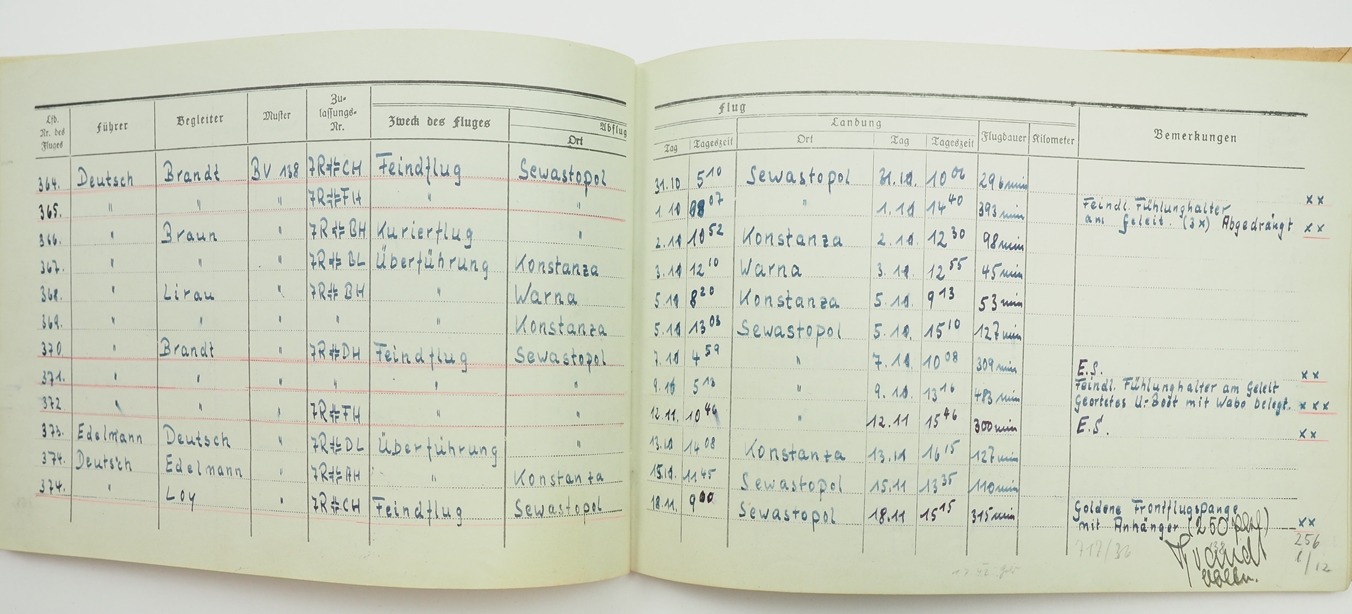 Flug
Lfd. Nr. des Fluges Führer Begleiter Muster Zu-lassungs-Nr. Zweck des Fluges Abflug Ort Tag Tageszeit Landung Ort Tag Tageszeit Flugdauer Kilometer Bemerkungen
364. Deutsch Brandt BV 138 7R+CH Feindflug Sewastopol 31.10 5 10 Sewastopol 31.10. 10 06 296 min xx
365. " " " 7R+FH " " 1.10 07 " 1.10 14 40 393 min Feindl. Fühlunghalter
am Geleit. (3x) Abgedrängt xx
366. " Braun " 7R+BH Kurierflug " 2.10 10 52 Konstanza 2.10. 12 30 98 min
367. " " " 7R+BL Überführung Konstanza 3.10 12 10 Warna 3.10. 12 55 45 min
368. " Lirau " 7R+BH " Warna 5.10 8 20 Konstanza 5.10. 9 13 53 min
369. " " " " " Konstanza 5.10 13 03 Sewastopol 5.10. 15 10 127 min
370 " Brandt " 7R+DH Feindflug Sewastopol 7.10 4 59 " 7.10 10 08 309 min E.S. xx
371. " " " " " " 9.10 5 13 " 9.10 13 16 483 min Feindl. Fühlunghalter am Geleit
Geortetes U-Boot mit Wabo belegt. xxx
372 " " " 7R+FH " " 12.11. 10 46 " 12.11 15 46 300 min E.S. xx
373. Edelmann Deutsch " 7R+DL Überführung " 13.10 14 08 Konstanza 13.11 16 15 127 min
374. Deutsch Edelmann " 7R+AH " Konstanza 11 45 Sewastopol 15.11 13 35 110 min
374. " Loy " 7R+CH Feindflug Sewastopol 18.11. 9 00 Sewastopol 18.11 15 15 315 min Goldene Frontflugspange
mit Anhänger (250 xx
256
1/12